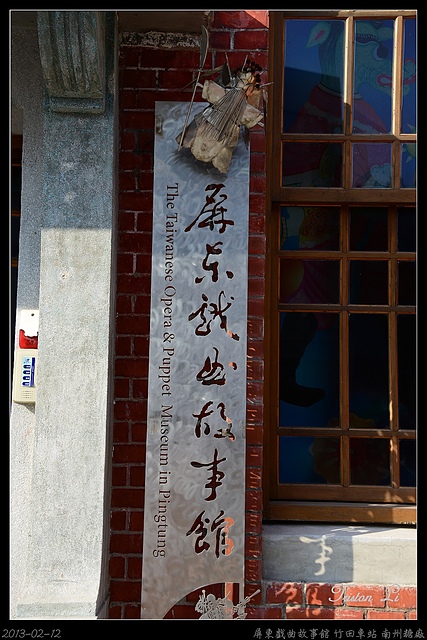 屏東戲曲故事館
The Taiwanese Opera & Puppet Museum in Pingtung
Tristan Li
2013-02-12
屏東戲曲故事館 竹田車站 南州糖廠